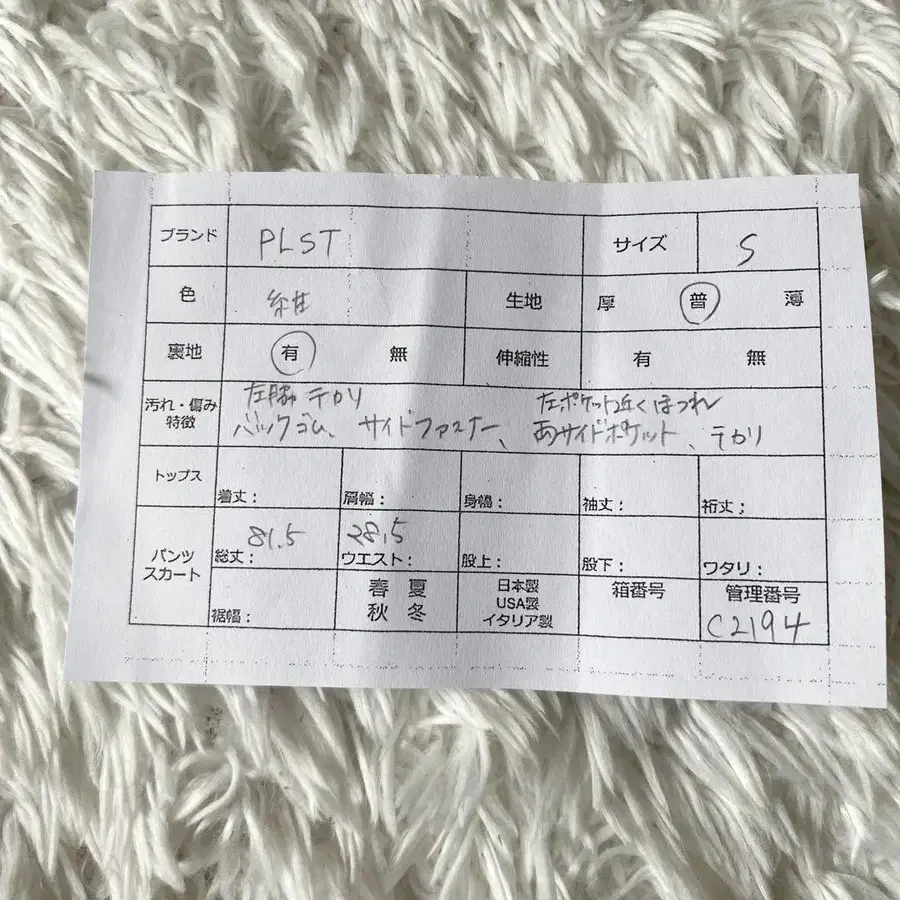 ブランド PLST サイズ S
色 生地 厚 普 薄
裏地 有 無 伸縮性 有 無
汚れ・傷み 左脇 テカリ 左ポケット近くほつれ
特徴 バックゴム、サイドファスナー、両サイドポケット、テカリ
トップス 着丈: 肩幅: 身幅: 袖丈: 裄丈:
パンツ 81.5 28.5
スカート 総丈: ウエスト: 股上: 股下: ワタリ:
裾幅: 春 夏 日本製 箱番号 管理番号
秋 冬 USA製 C2194
イタリア製